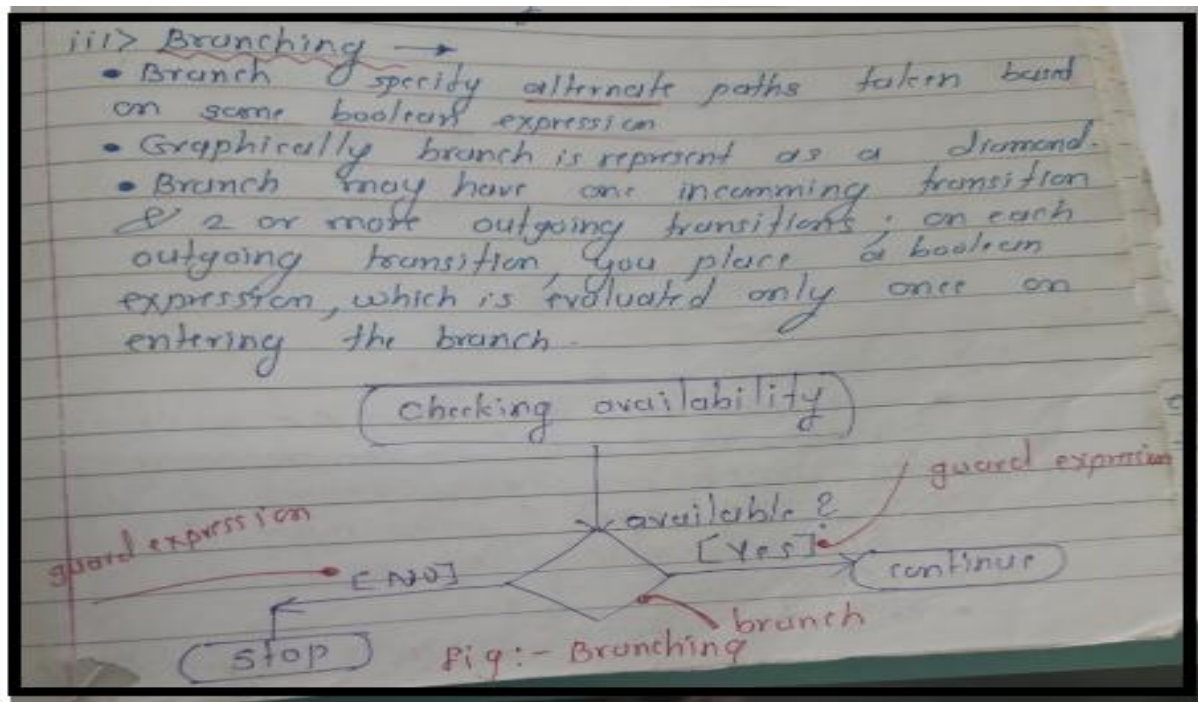 iii> Branching →
• Branch specify alternate paths taken based
on some boolean expression
• Graphically branch is represent as a diamond.
• Branch may have one incomming transition
& 2 or more outgoing transitions, on each
outgoing transition, you place a boolean
expression, which is evaluated only once on
entering the branch.
Checking availability
guard expression
available?
guard expression
[Yes]
[NO]
continue
branch
stop
Fig:- Branching